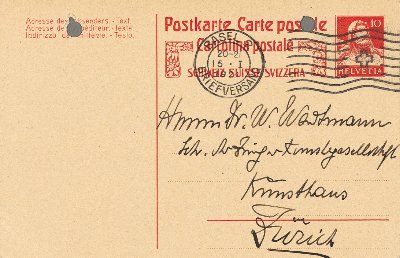 Adresse des Absenders - Text.
Adresse de l'expéditeur - texte
Indirizzo del mittente. - Testo.
Postkarte Carte postale
Cartolina postale
SCHWEIZ SUISSE SVIZZERA
10
HELVETIA
BASEL
20-2
15. I
BRIEFVERSAND
Herrn Dr. W. Wartmann
Kunstgesellschaft
Kunsthaus
Zürich